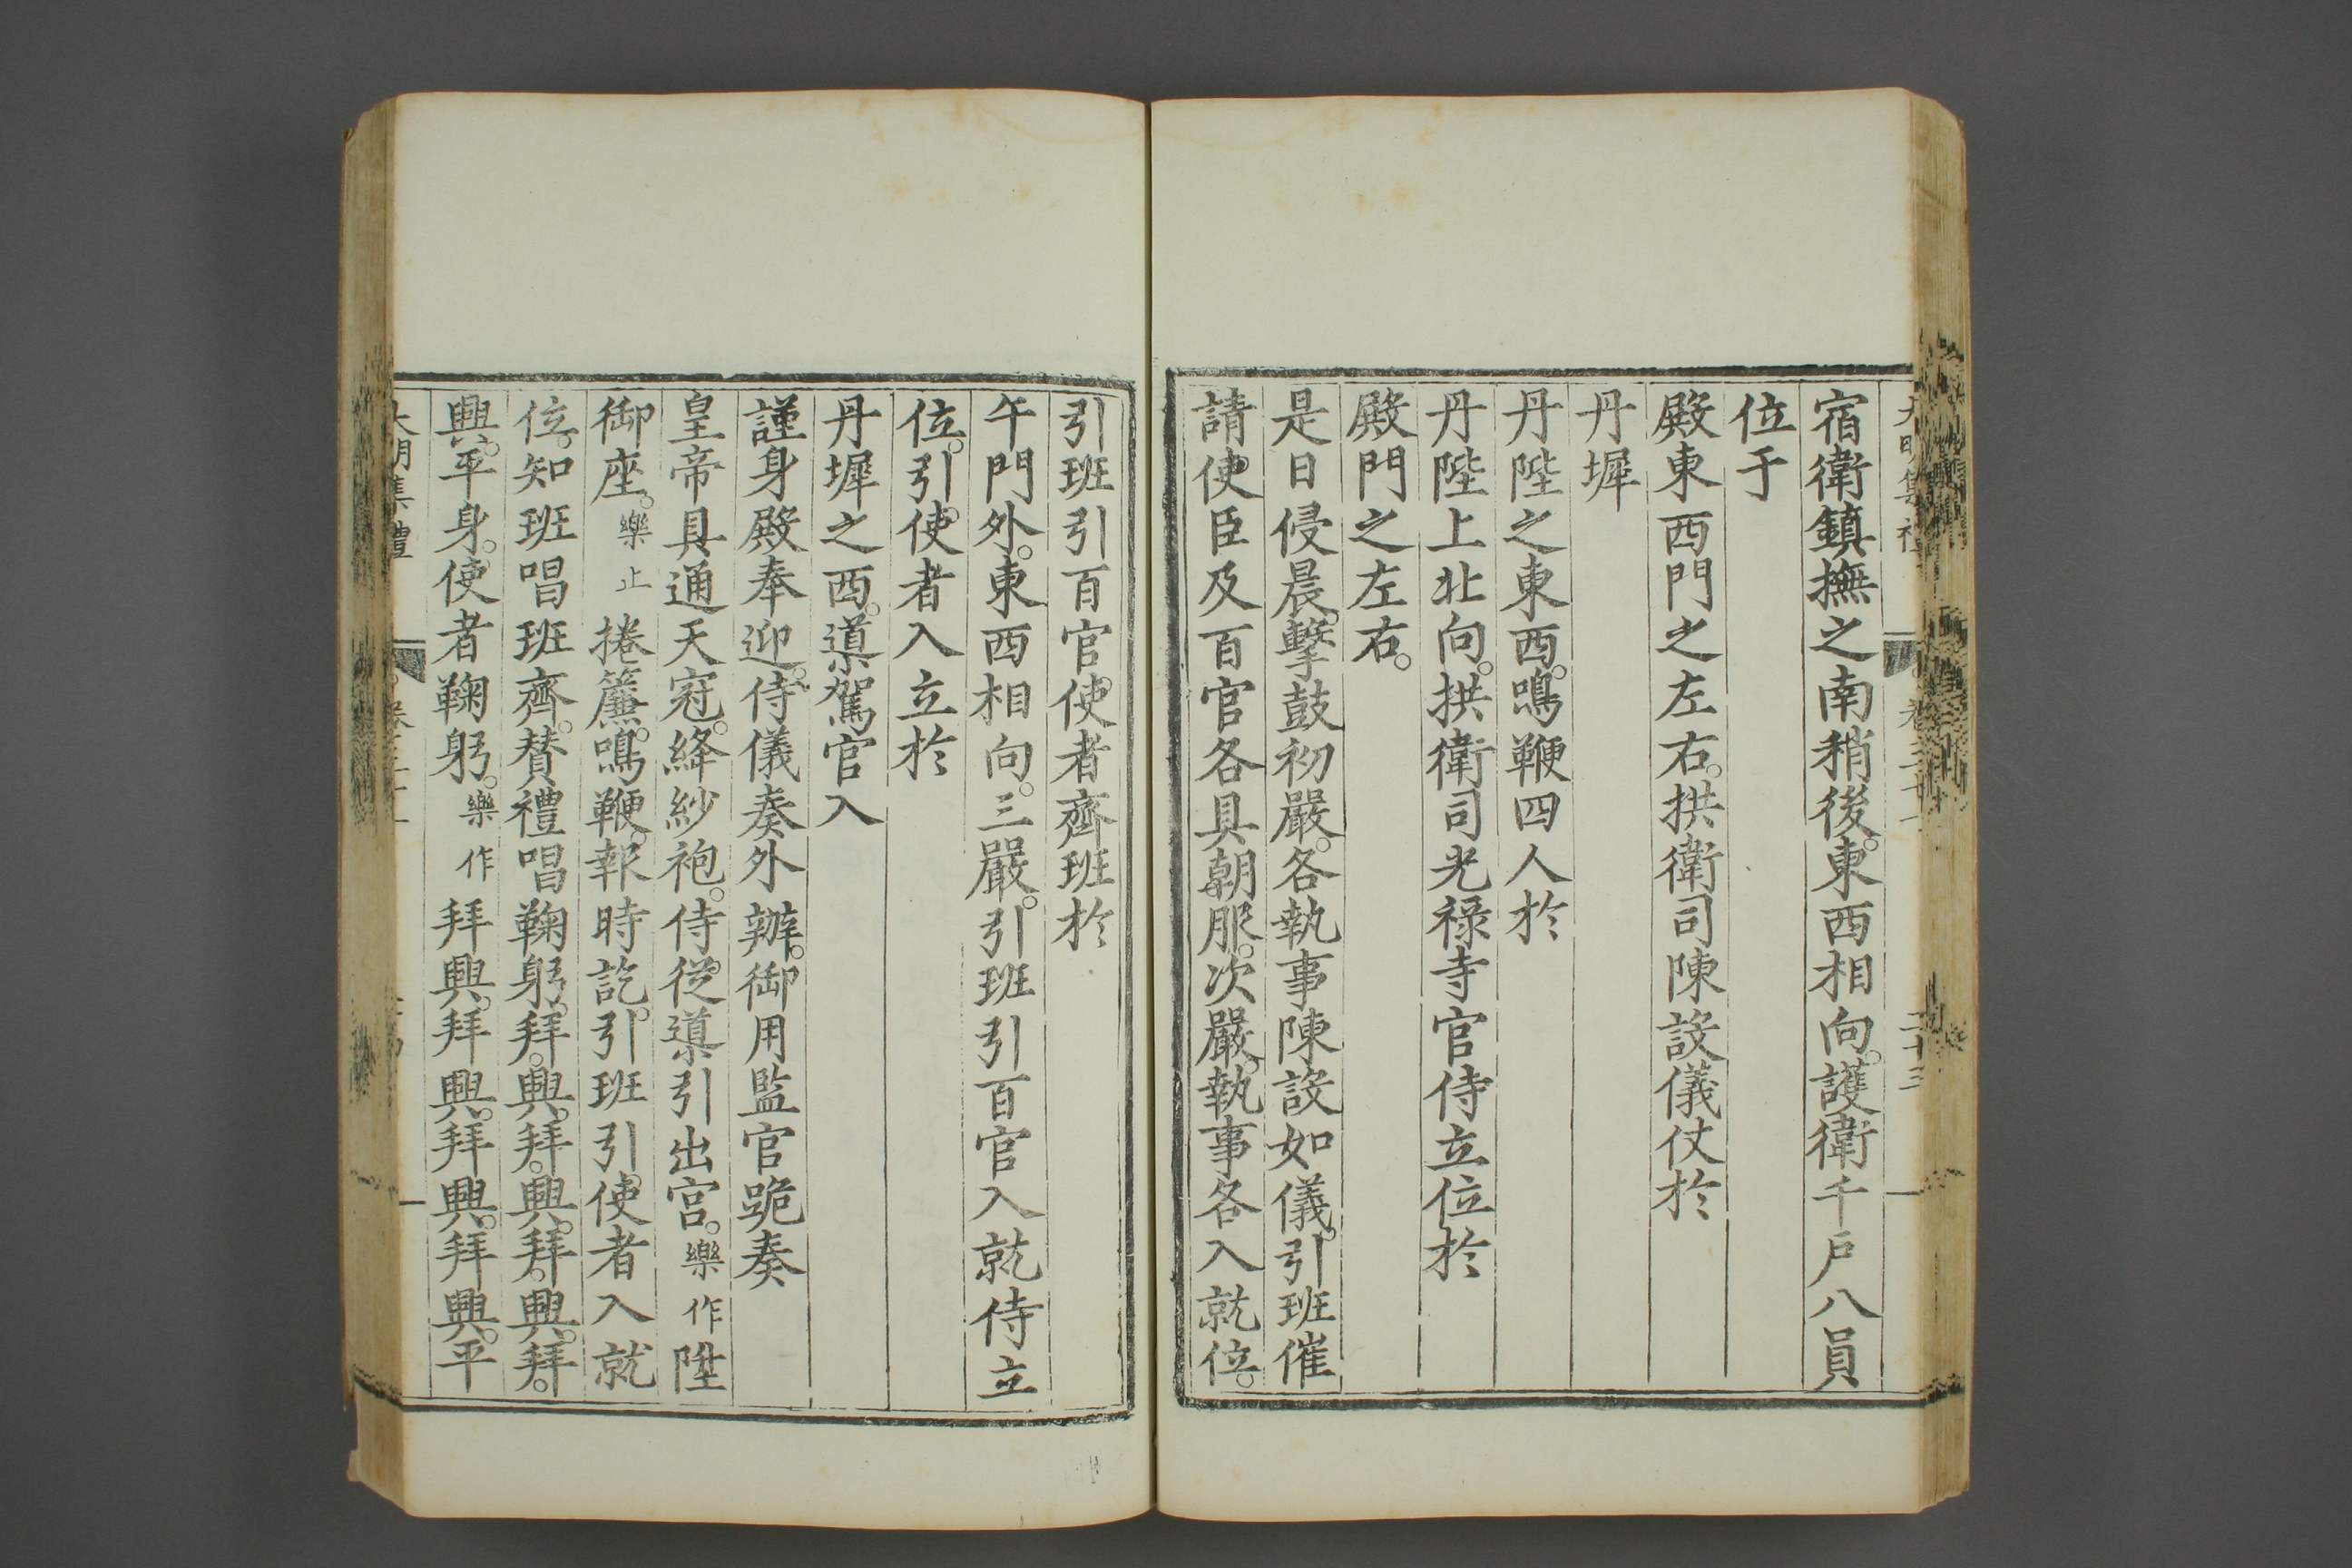 宿衛鎮撫之南稍後。東西相向。護衛千戶八員
位于
殿東西門之左右。拱衛司陳設儀仗於
丹墀
丹陛之東西。鳴鞭四人於
丹陛上北向。拱衛司光禄寺官侍立位於
殿門之左右。
是日侵晨。擊鼓初嚴。各執事陳設如儀。引班催
請使臣及百官各具朝服。次嚴。執事各入就位。
大明集禮 卷三十一 二十三
引班引百官。使者齊班於
午門外。東西相向。三嚴。引班引百官入就侍立
位。引使者入立於
丹墀之西。導駕官入
謹身殿奉迎。侍儀奏外辦。御用監官跪奏
皇帝具通天冠。絳紗袍。侍從導引出宫。樂作陞
御座。樂止捲簾。鳴鞭。報時訖。引班引使者入就
位。知班唱班齊。賛禮唱鞠躬。拜。興。拜。興。拜。興。拜。
興。平身。使者鞠躬。樂作拜興。拜興。拜興。拜興。平
大明集禮